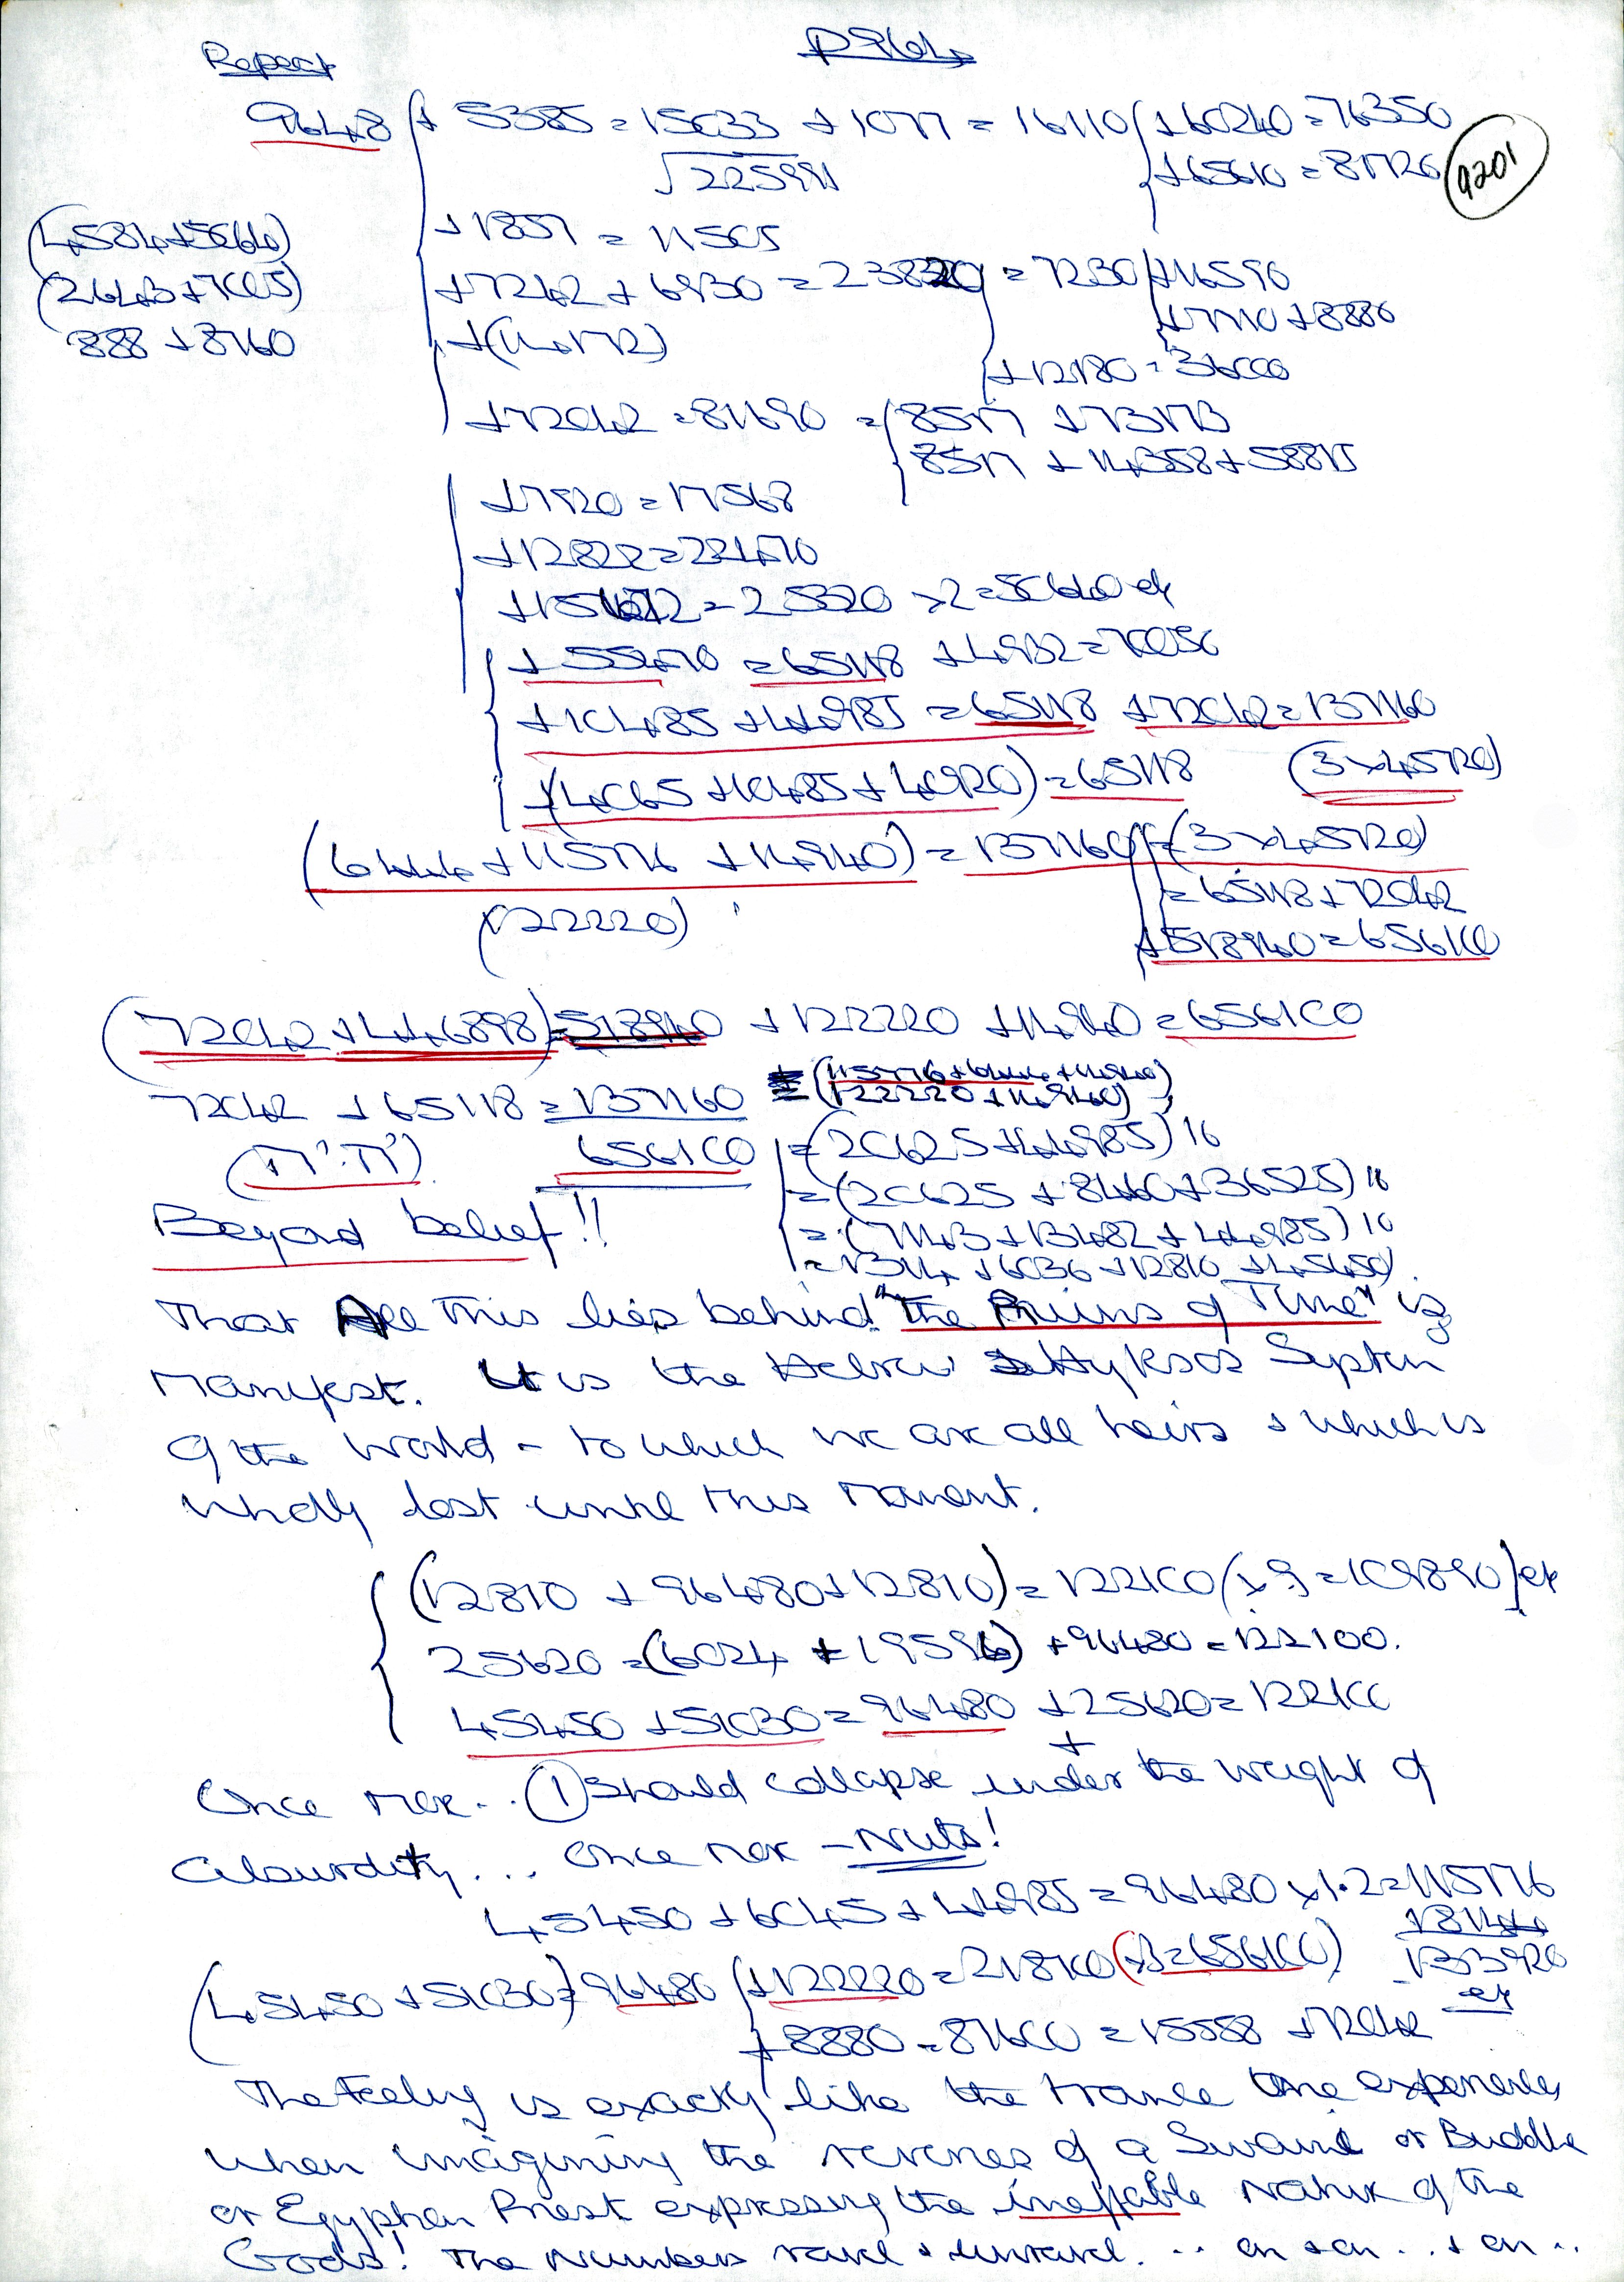 Repeat
p964
9201
9648 + 5385 = 15033 + 1077 = 16110 + 60240 = 76350
√225991
+ 65610 = 81720
(4584 + 5064)
+ 1857 = 11505
(2643 + 7005)
+ 7242 + 6930 = 23820 = 7230 + 16590
+ 7710 + 8880
888 + 8760
+ (14172)
+ 12180 = 36000
+ 72042 = 81690 = 8517 + 73173
8517 + 14358 + 58815
+ 7920 = 17568
+ 12822 = 22470
+ 15672 = 25320 × 2 = 50640 etc
+ 55470 = 65118 + 4932 = 70050
+ 10485 + 44985 = 65118 + 72042 = 137160
+ (4065 + 10485 + 40920) = 65118 (3 × 45720)
(6444 + 115776 + 14940) = 137160 = (3 × 45720)
(122220)
= 65118 + 72042
+ 518940 = 656100
(72042 + 446898) = 518940 + 122220 + 14940 = 656100
72042 + 65118 = 137160 = (115776 + 6444 + 14940)
(122220 + 14940)
(π'.π') 656100 = (20625 + 44985) 10
= (20625 + 8460 + 36525) 10
Beyond belief!! = (7143 + 13482 + 44985) 10
= 1314 + 6036 + 12810 + 45450)
That All this lies behind "The Ruins of Time" is
manifest. It is the Hebrew Hyksos System
of the World - to which we are all heirs & which is
wholly lost until this moment.
(12810 + 96480 + 12810) = 122100 (× 9 = 109890) etc
25620 = (6024 + 19596) + 96480 = 122100.
45450 + 51030 = 96480 + 25620 = 122100
+
Once more.. (1) should collapse under the weight of
Absurdity... Once more - Nuts!
45450 + 6045 + 44985 = 96480 × 1.2 = 115776
18144
133920
etc
(45450 + 51030) = 96480 + 122220 = 218700 (× 3 = 656100)
+ 8880 = 87600 = 15558 + 72042
The Feeling is exactly like the trance one experiences
when imagining the reveries of a Swami or Buddha
or Egyptian Priest expressing the ineffable Nature of the
Gods! The Numbers ravel & unravel... on & on.. & on..